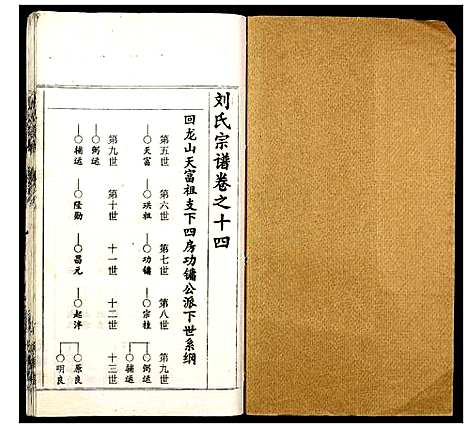 刘氏宗谱卷之十四
回龙山天富祖支下四房功镛公派下世系纲
第五世 第六世 第七世 第八世 第九世
天富 珙祖 功镛 宗桂 弼运 辅运
第九世 第十世 十一世 十二世 十三世
弼运
辅运 隆勋 昌元 起洋 原良 明良